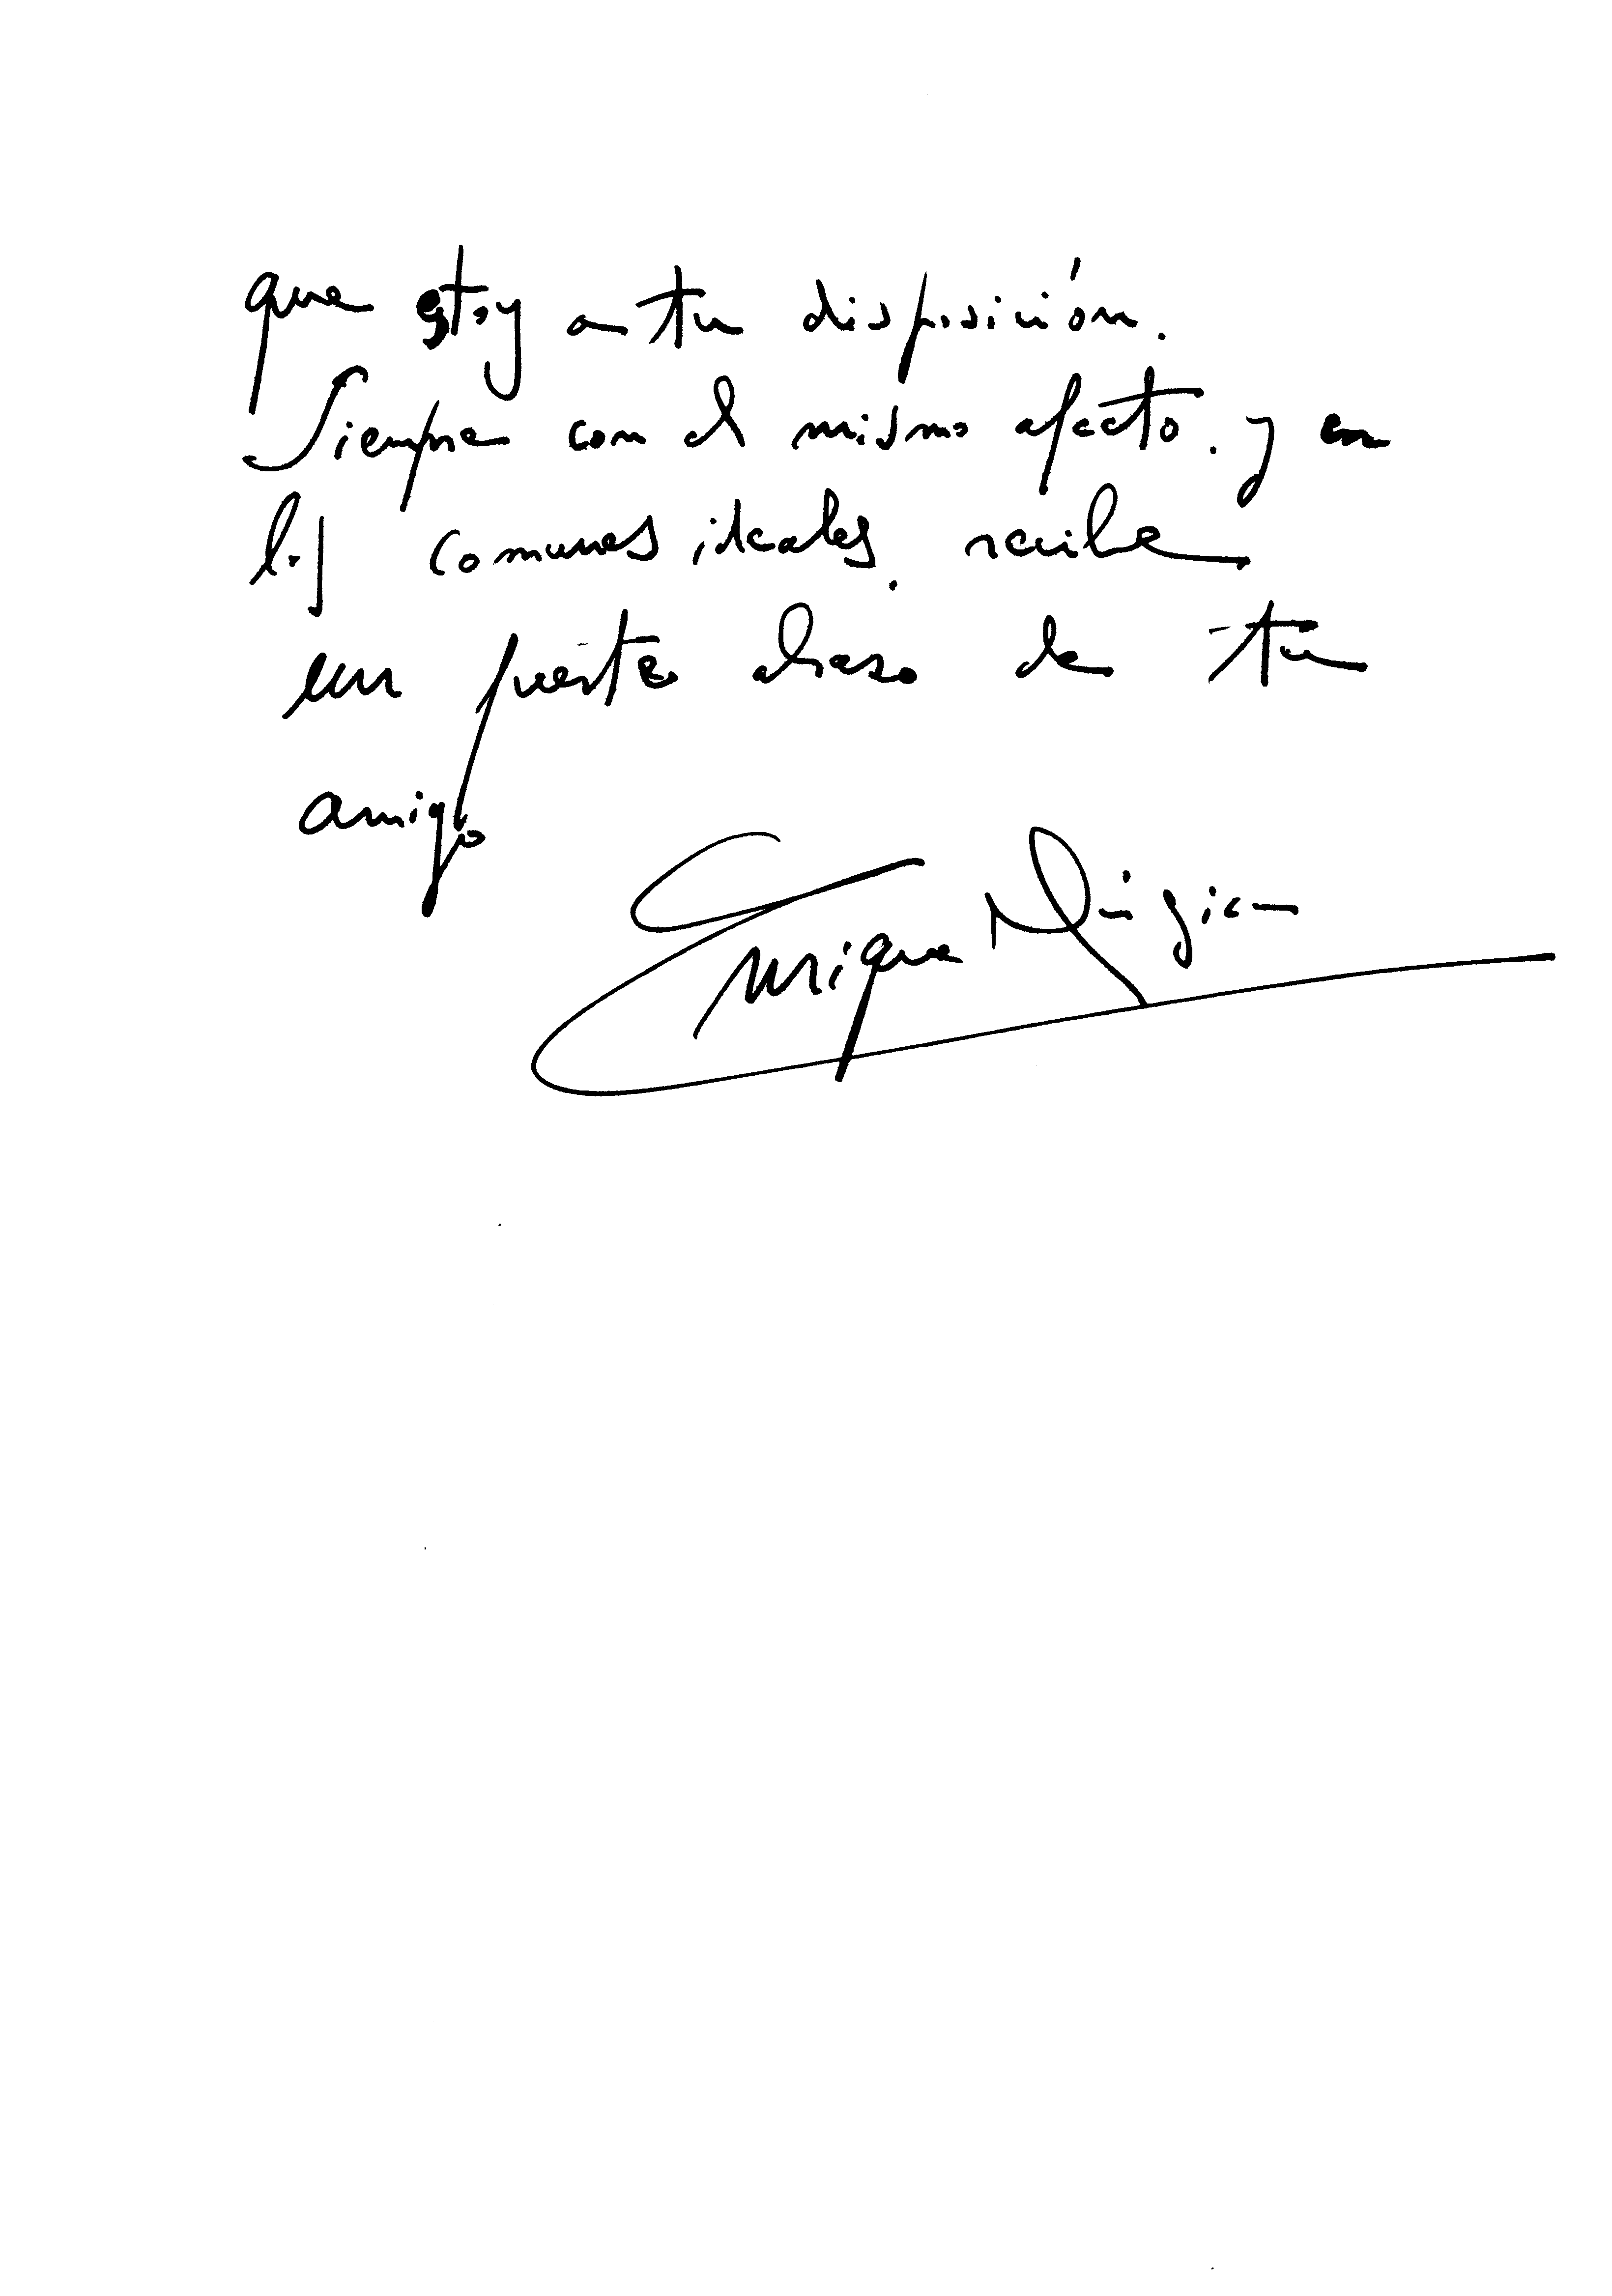 que estoy a tu disposición.
Siempre con el mismo afecto. y en
los comunes ideales, recibe
un fuerte abrazo de tu
amigo
Enrique Múgica